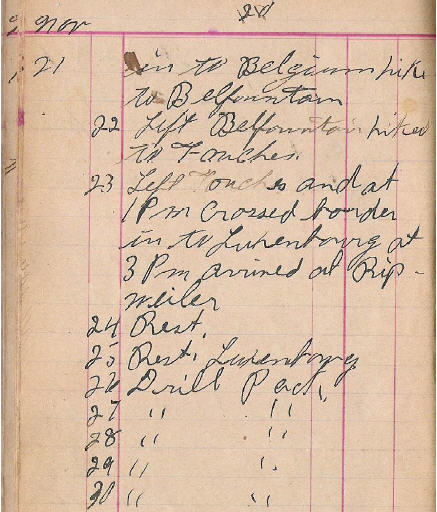 Nov
21 in to Belgium hike
to Belfountain
22 Left Belfountain hiked
to Touches
23 Left Touches and at
1 Pm crossed border
in to Luxenbourg at
3 Pm arrived at Rip-
weiler
24 Rest.
25 Rest. Luxenbourg
26 Drill Pack.
27 " "
28 " "
29 " "
30 " "